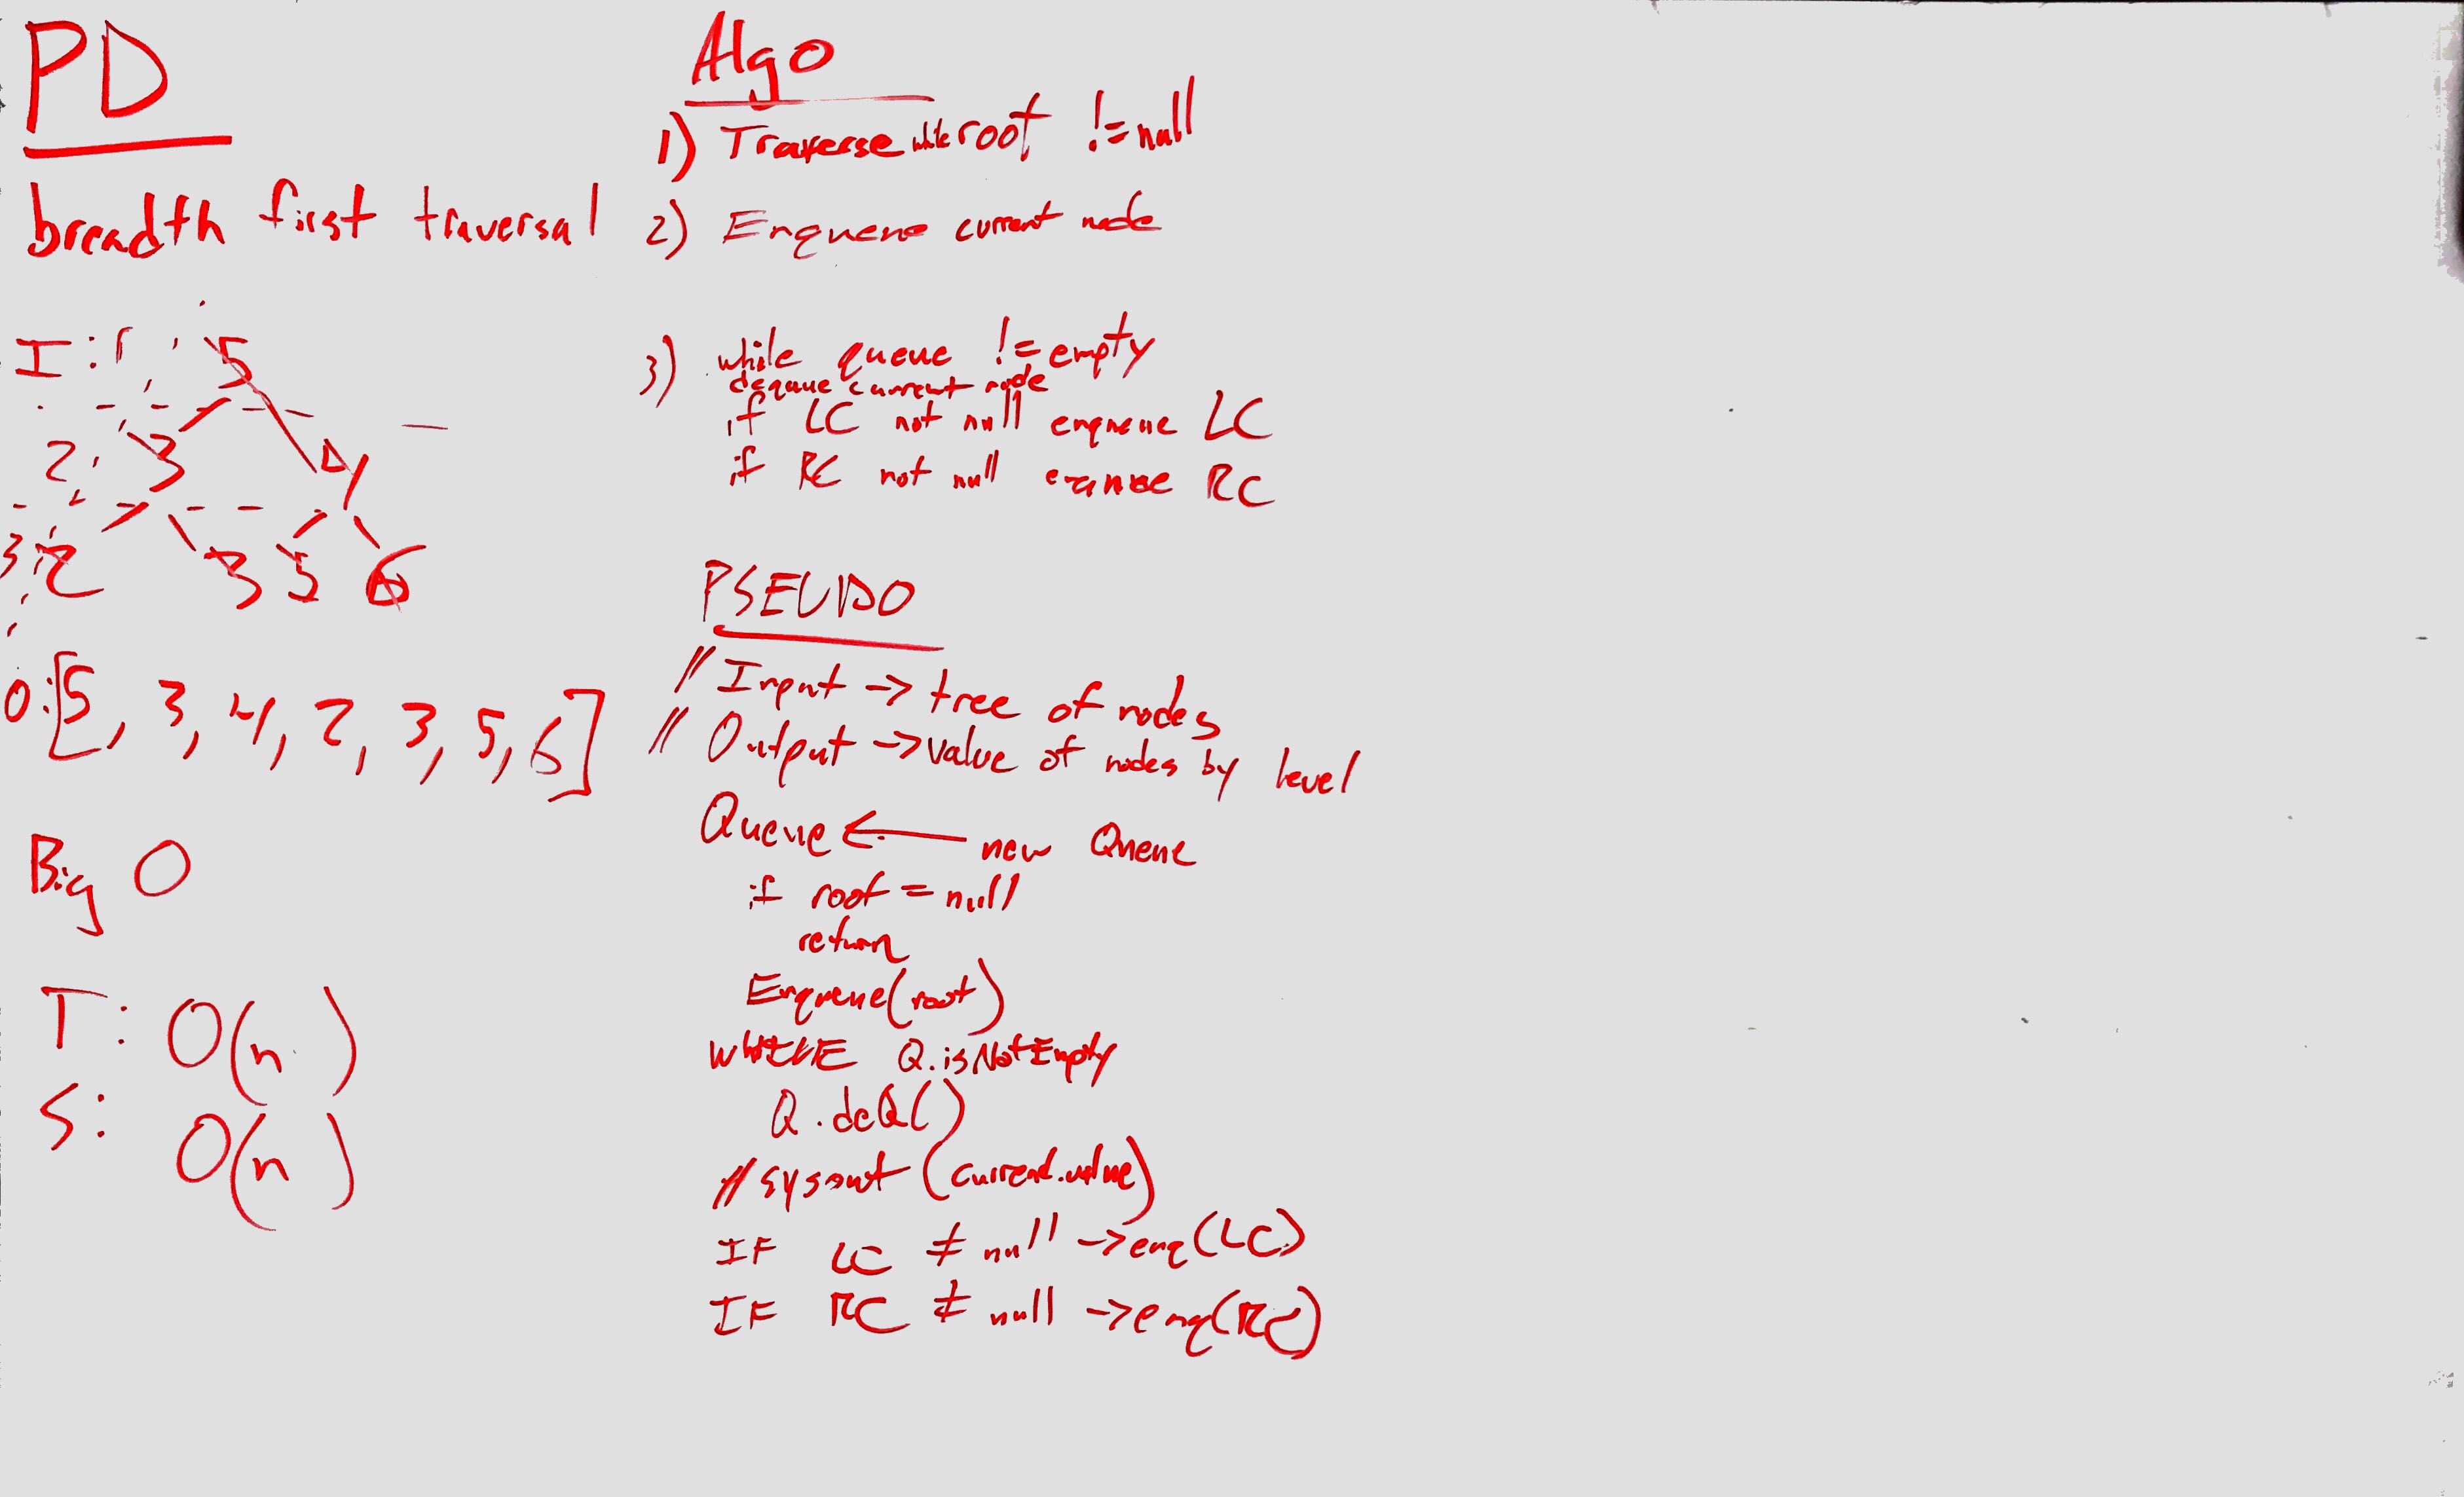 PD
breadth first traversal
I: 5
2, 3 4
3, 2 3 5 6
O: [5, 3, 4, 2, 3, 5, 6]
Big O
T: O(n)
S: O(n)
Algo
1) Traverse while root != null
2) Enqueue current node
3) while queue != empty
deqaue current node
if LC not null enqueue LC
if RC not null RC
PSEUDO
// Input -> tree of nodes
// Output -> value of nodes by level
Queue <— new Queue
if root = null
return
Enqueue(root)
WHILE Q.isNotEmpty
Q.deQ()
// sysout (current.value)
IF LC ≠ null -> enq(LC)
IF RC ≠ null -> enq(RC)